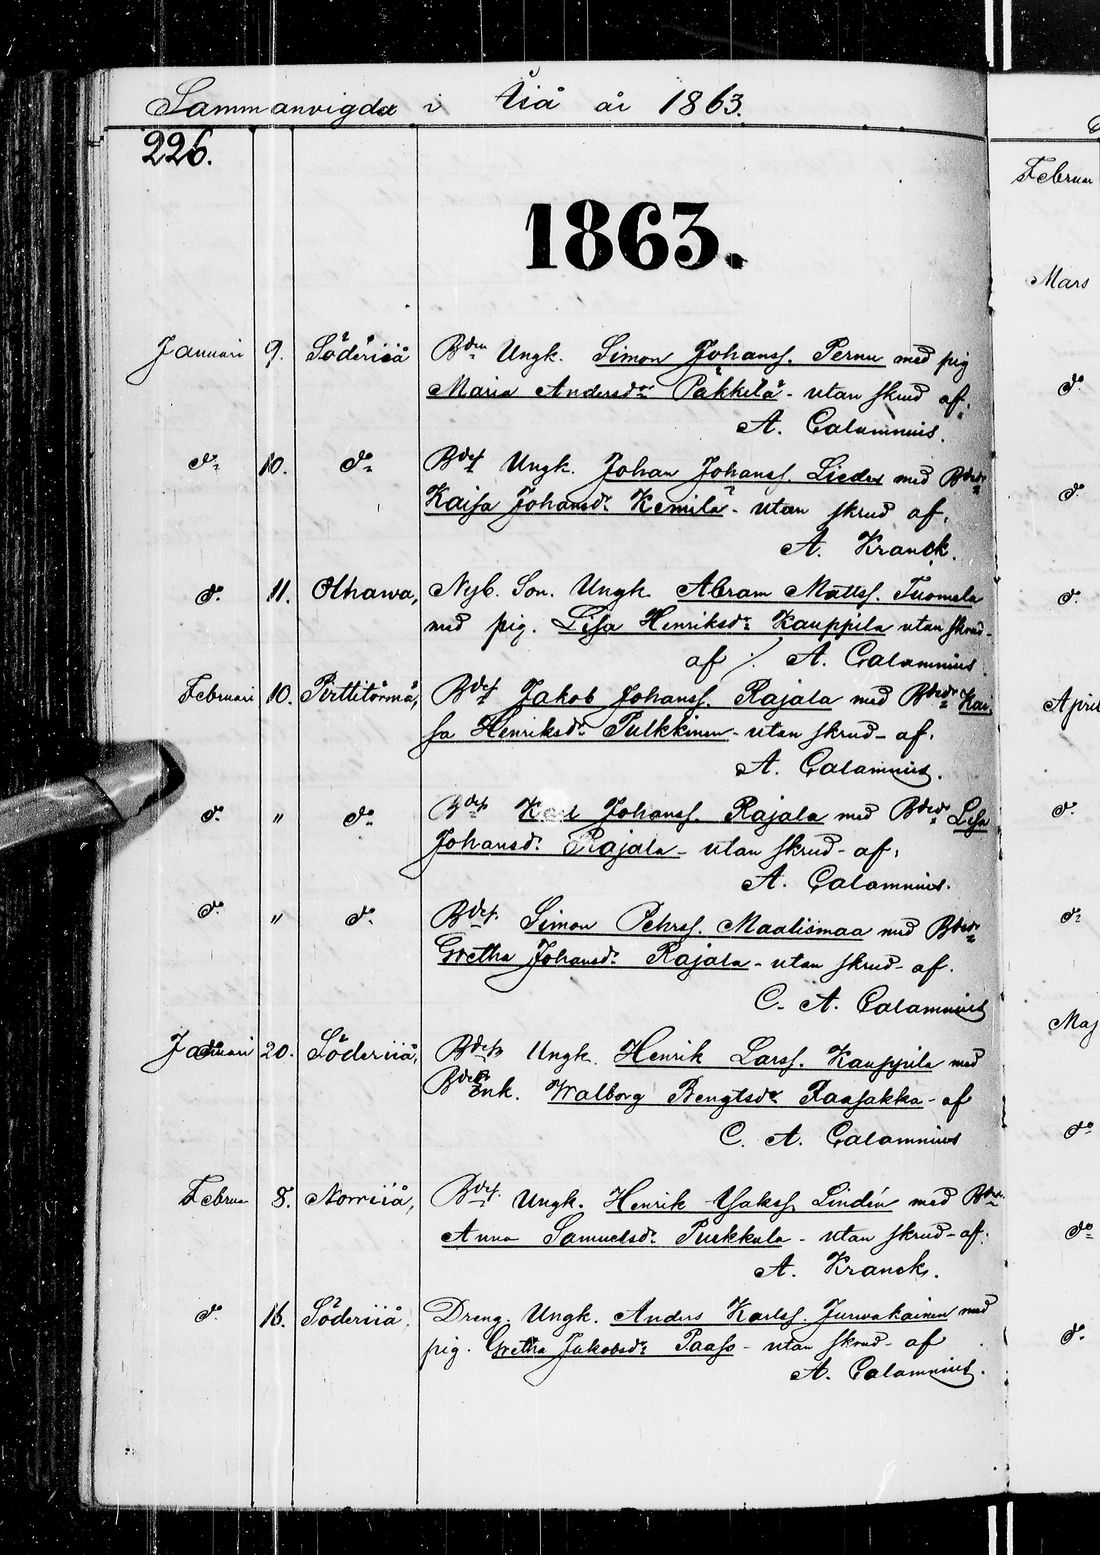 Sammanvigda i Iiå år 1863.
226.
1863.
Januari 9. Söderiiå Bdsn Ungk. Simon Johanss. Pernu med pig
Maria Andersdr Pakkila - utan skrud af.
A. Calamnius.
do 10. do Bdes Ungk. Johan Johanss. Liedes med Bdedr
Kaisa Johansdr Kemilä - utan skrud af.
A. Kranck.
do 11. Olhawa, Nyb. Son. Ungk. Abram Mattss. Tuomela
med pig. Lisa Henriksdr Kauppila utan skrud-
af /. A. Calamnius
Februari 10. Pirttitörmä, Bdes Jakob Johanss. Rajala med Bdedr Kai-
sa Henriksdr Pulkkinen - utan skrud - af.
A. Calamnius.
do " do Bdes Karl Johanss. Rajala med Bdedr Lisa
Johansdr Rajala - utan skrud - af.
A. Calamnius.
do " do Bdes. Simon Pehrss. Maalismaa med Bdedr
Gretha Johansdr Rajala - utan skrud - af.
C. A. Calamnius
Januari 20. Söderiiå, Bdes Ungk. Henrik Larss. Kauppila med
Bde Enk. Walborg Bengtsdr Raasakka - af
C. A. Calamnius
Februar 8. Norriiå, Bdes. Ungk. Henrik Isakss. Lindén med
Anna Samuelsdr Purkkala - utan skrud - af.
A. Kranck.
do 16. Söderiiå, Dreng. Ungk. Anders Karlss. Jurwakainen med
pig. Gretha Jakobsdr Paaso - utan skrud - af
A. Calamnius.
Februar
Mars
do
do
do
April
do
do
Maj
do
do
do